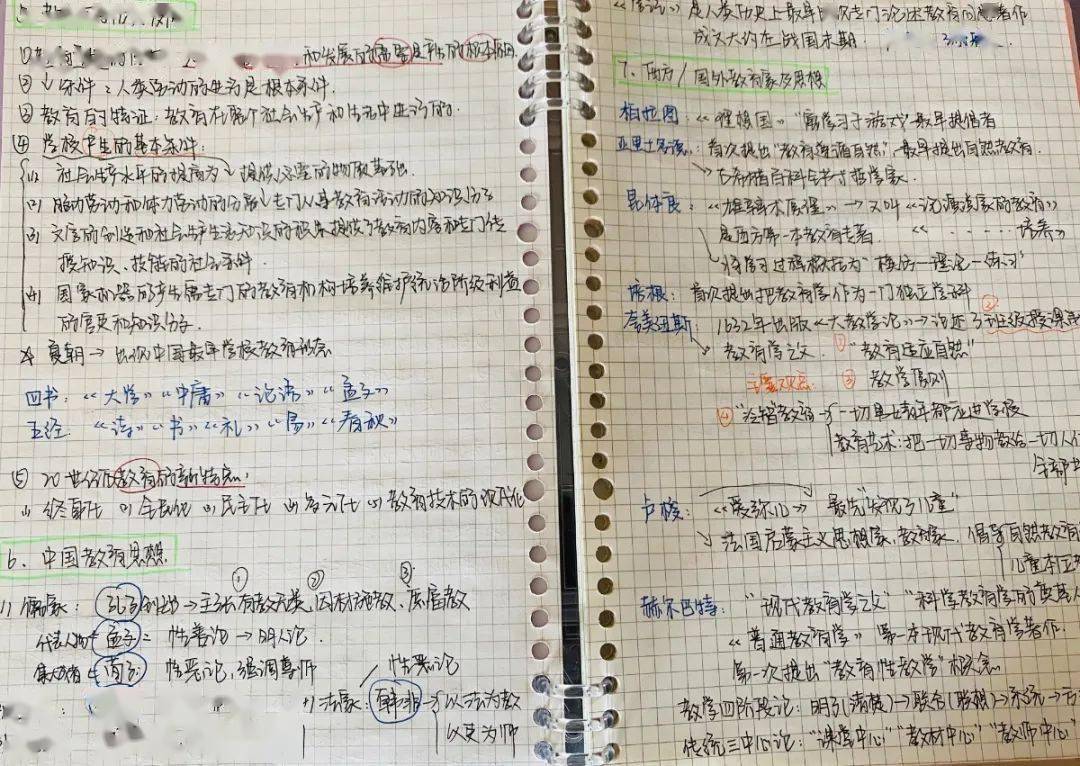 和发展的需要是产生的根本原因
② 条件：人类劳动的进行是根本条件.
③ 教育的特征：教育在整个社会生产和生活中进行的.
④ 学校产生的基本条件：
(1) 社会生产水平的提高为↓提供必要的物质基础.
(2) 脑力劳动和体力劳动的分离↓专门从事教育活动的知识分子
(3) 文字的创造和社会生产生活知识的积累提供了教育内容和专门传
授知识、技能的社会条件.
(4) 国家机器的产生需专门的教育机构培养维护统治阶级利益
的官吏和知识分子.
☆ 夏朝→出现中国最早学校教育形态
四书：《大学》《中庸》《论语》《孟子》
五经 《诗》《书》《礼》《易》《春秋》
⑤ 20世纪后教育的新特点：
(1) 终身化 (2) 全民化 (3) 民主化 (4) 多元化 (5) 教育技术的现代化
6、中国教育思想
① ② ③
1) 儒家：孔子创始→主张有教无类、因材施教、
代表人物 孟子= 性善论→明人论.
集大成者 荀子 性恶论，强调尊师
性恶论
4) 法家：韩非→以法为教
以吏为师
是人类历史上最早 次专门论述教育问题著作
成文大约在战国末期
7、西方/国外教育家及思想
柏拉图：《理想国》"寓学习于游戏"最早提倡者
亚里士多德：首次提出"教育遵循自然"，最早提出自然教育.
→古希腊百科全书式哲学家.
昆体良：《雄辩术原理》→又叫《论演说家的教育》
是西方第一本教育专著. 《 · · · · · 培养》
将学习过程概括为"模仿—理论—练习"
培根：首次提出把教育学作为一门独立学科
夸美纽斯：1632年出版《大教学论》→论述了②班级授课
教育学之父. ①"教育适应自然"
主要观点： ③ 教学原则
④"泛智教育 一切男女青年都应进学校
教育艺术：把一切事物教给一切人
全部
卢梭：《爱弥儿》 最先"发现了儿童"
→法国启蒙主义思想家、教育家. 倡导自然教育
儿童本位
赫尔巴特："现代教育学之父""科学教育学的奠基人
《普通教育学》第一本现代教育学著作.
第一次提出"教育性教学"概念
教学四阶段论：明了(清楚)→联合(联想)→系统→方
传统三中心论："课堂中心""教材中心""教师中心"